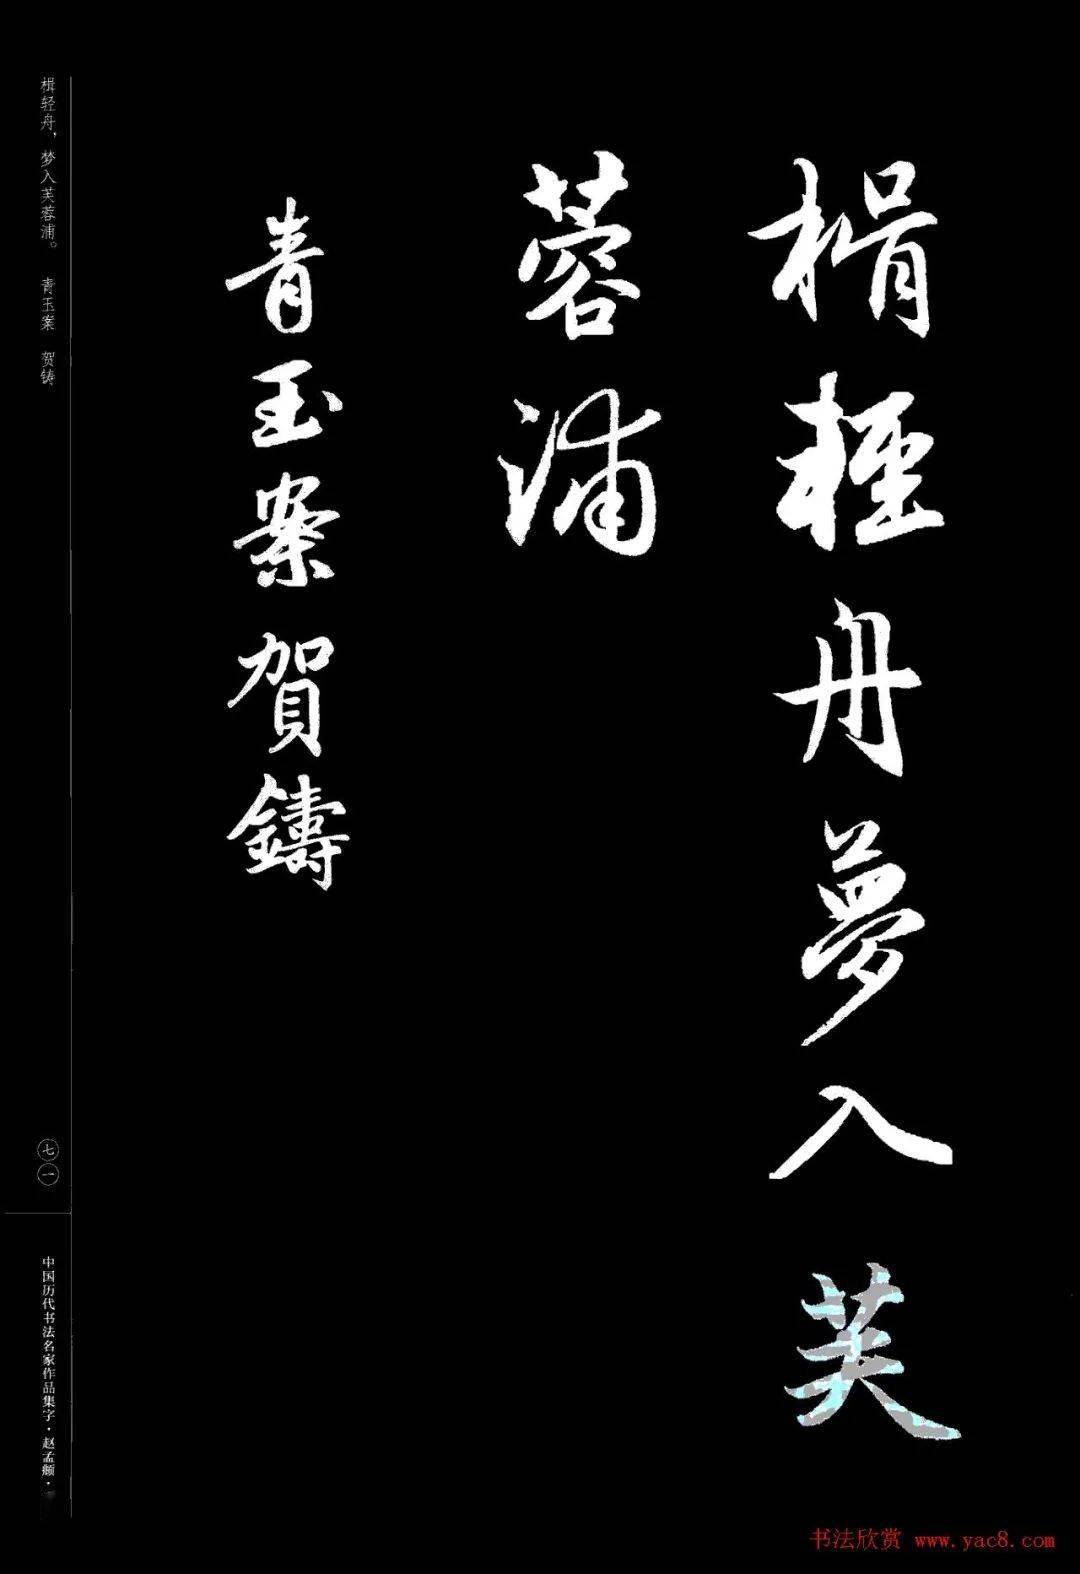 楫輕舟夢入芙
蓉浦
青玉案賀鑄
楫轻舟，梦入芙蓉浦。 青玉案 贺铸
七一
中国历代书法名家作品集字·赵孟頫·
书法欣赏 www.yac8.com